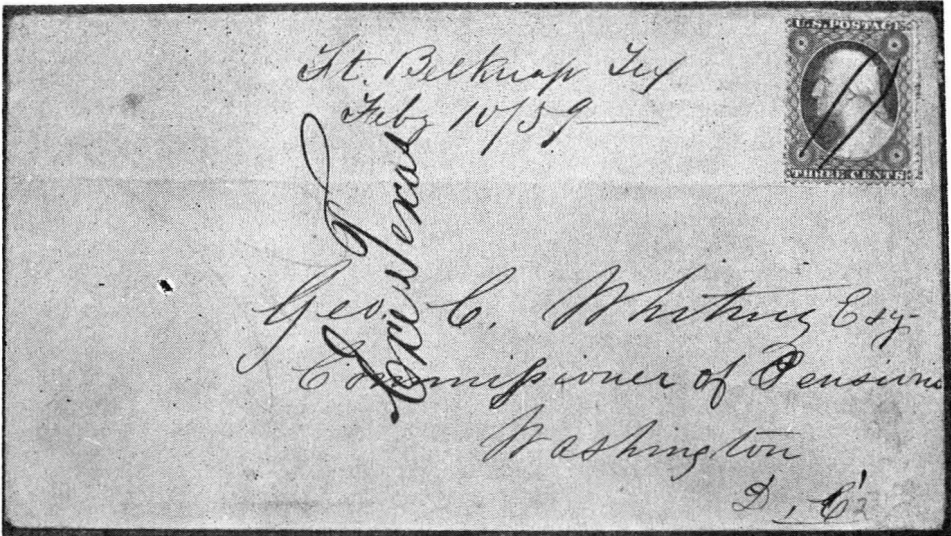 U.S. POSTAGE
THREE CENTS
Ft. Belknap Tex
Feby 10/59
Texas
Geo. C. Whitney Esq
Commissioner of Pensions
Washington
D, C